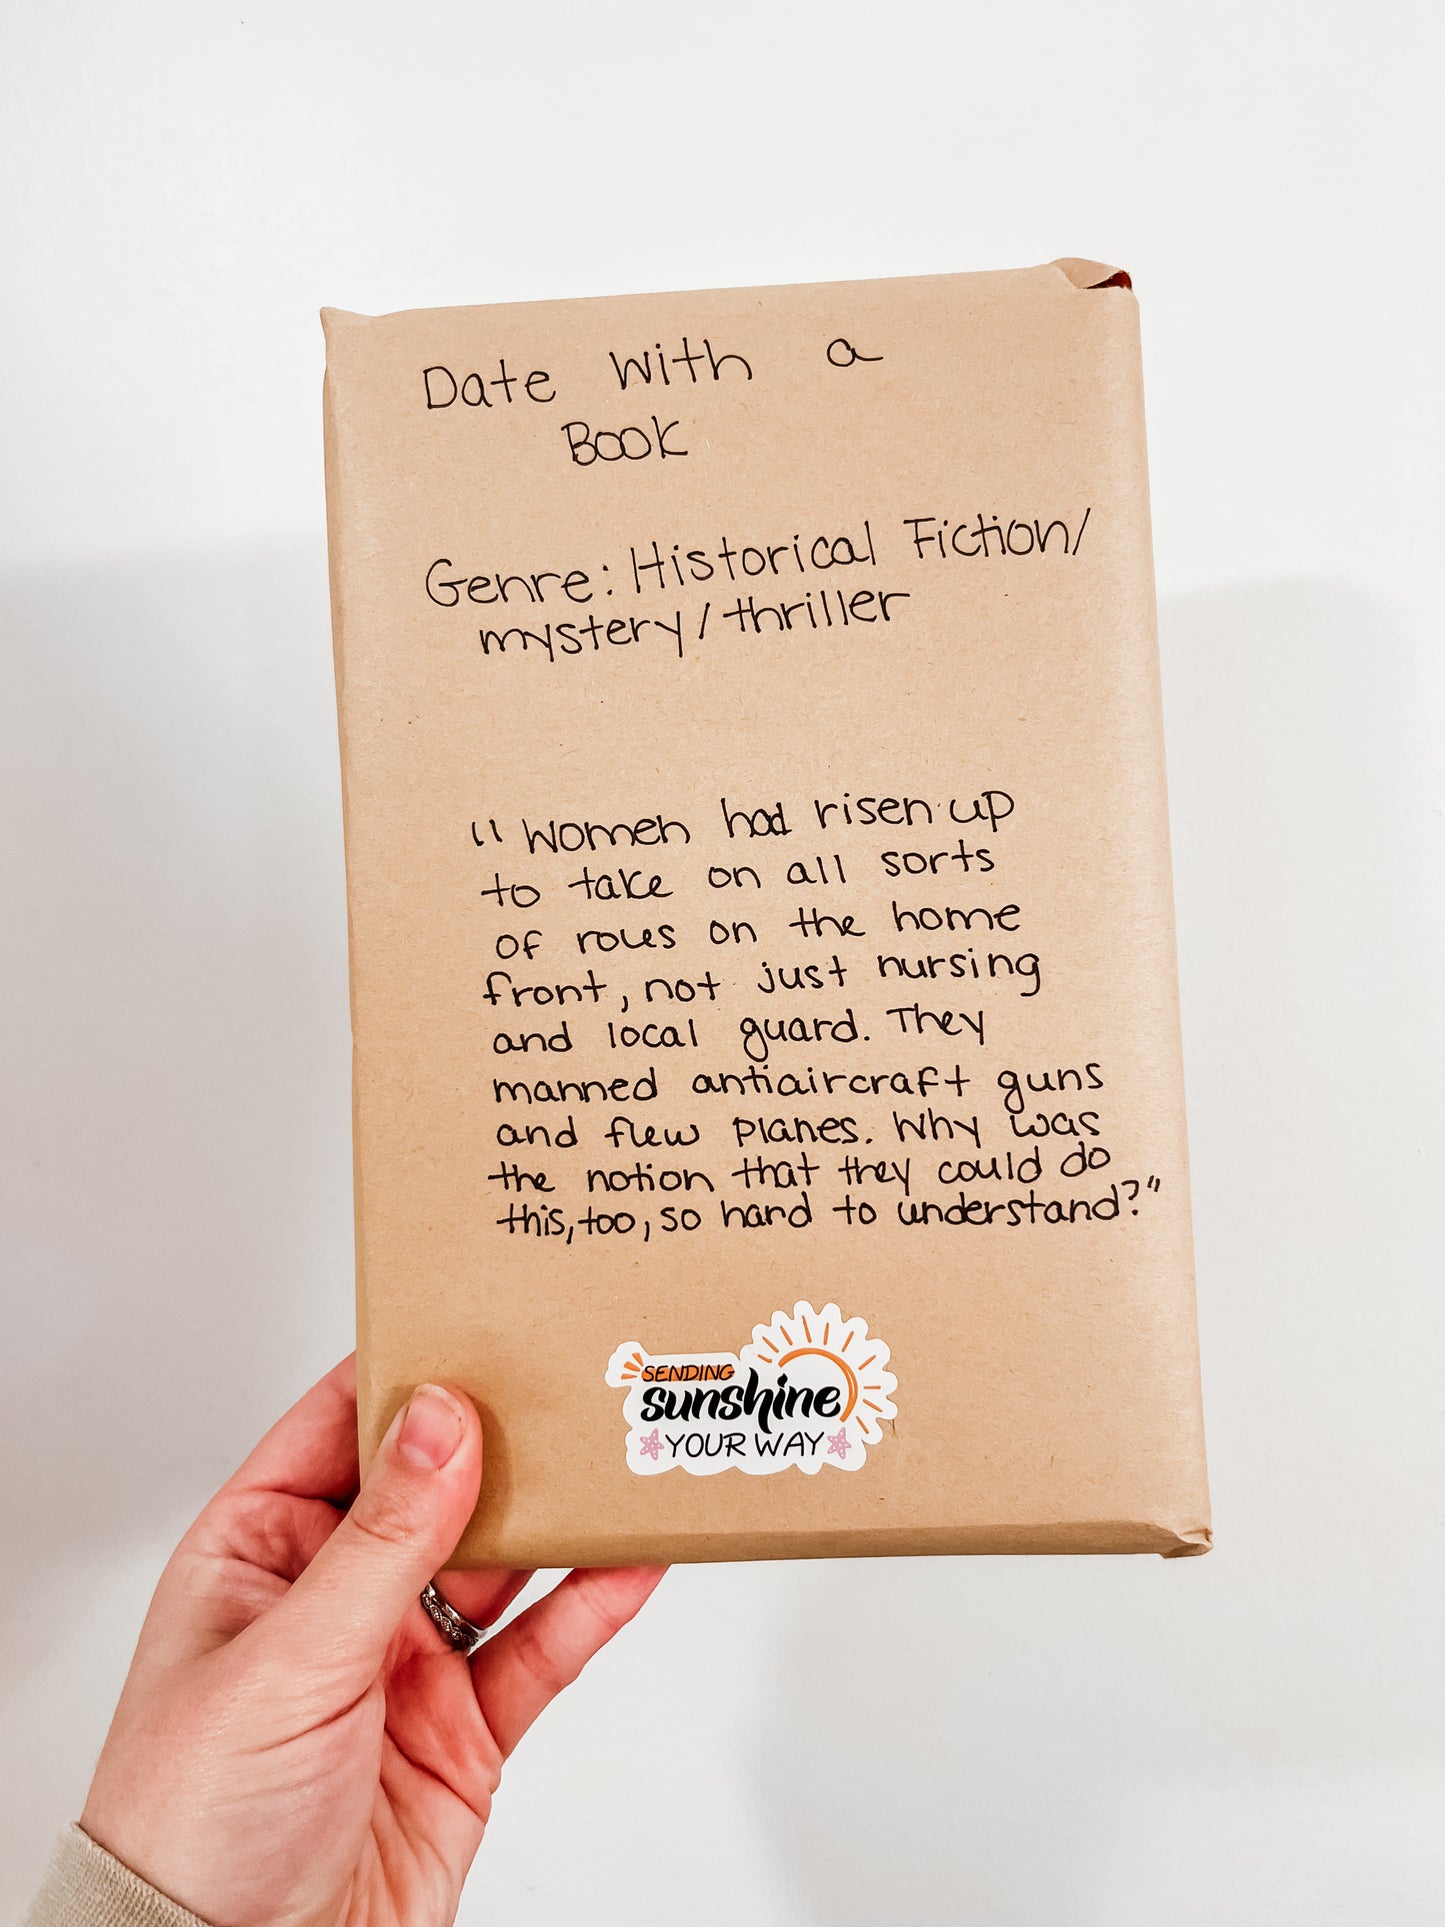 Date with a
Book
Genre: Historical Fiction/
mystery/thriller
"Women had risen up
to take on all sorts
of roles on the home
front, not just nursing
and local guard. They
manned antiaircraft guns
and flew planes. Why was
the notion that they could do
this, too, so hard to understand?"
SENDING
sunshine
YOUR WAY